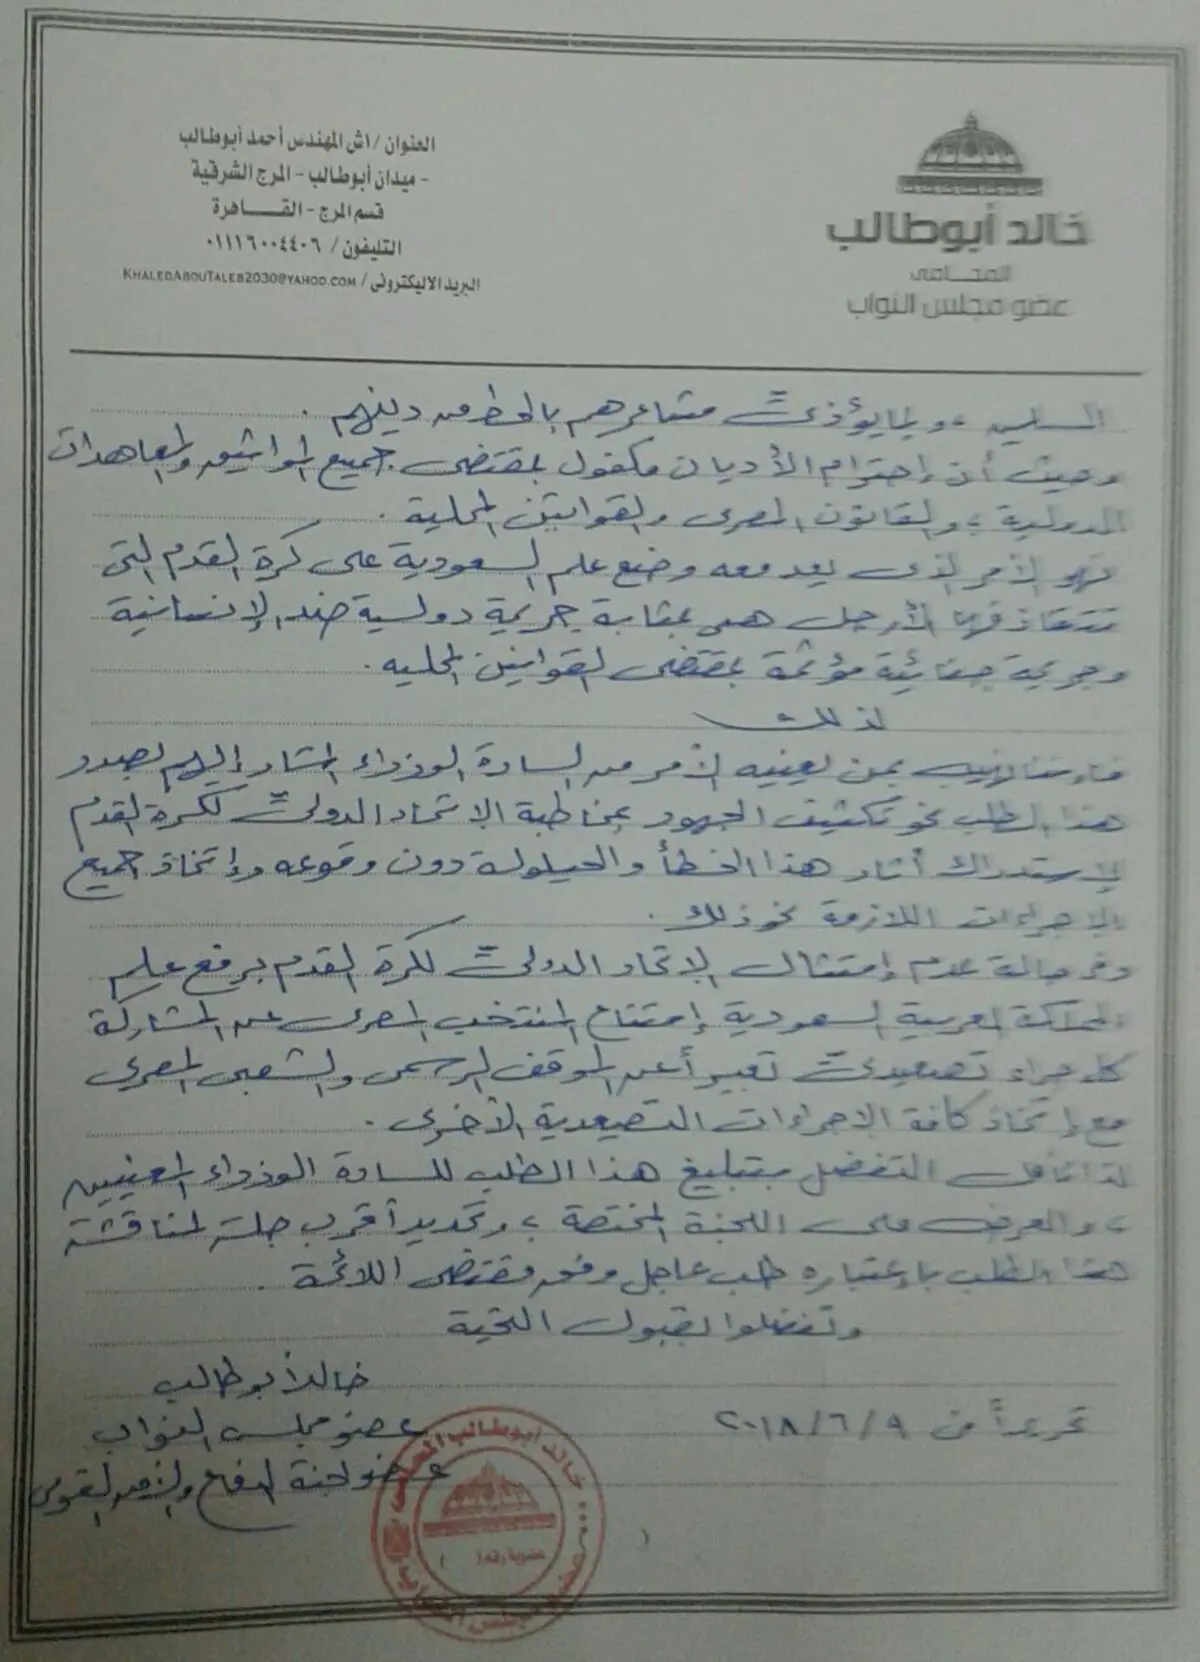 خالد أبوطالب
المحامى
عضو مجلس النواب
العنوان / ١ش المهندس أحمد أبوطالب
- ميدان أبوطالب - المرج الشرقية
قسم المرج - القـــاهرة
التليفون / ٠١١١٦٠٠٤٤٠٦
البريد الاليكترونى / KHALEDABOUTALEB2030@YAHOO.COM
المسلمين ، وبما يؤذى مشاعرهم بالحط من دينهم .
وحيث أن إحترام الأديان مكفول بمقتضى جميع المواثيق والمعاهدات
الدولية ، والقانون المصرى والقوانين المحلية .
فهو الأمر الذى يعد معه وضع علم السعودية على كرة القدم التى
تتقاذفها الأرجل هى بمثابة جريمة دولية ضد الإنسانية
وجريمة جنائية مؤثمة بمقتضى القوانين المحليه .
لذلك
فإننا نهيب بمن يعنيه الأمر من السادة الوزراء المشار إليهم بصدر
هذا الطلب نحو تكثيف الجهود بمخاطبة الإتحاد الدولى لكرة القدم
لإستدراك أثار هذا الخطأ والحيلولة دون وقوعه وإتخاذ جميع
الإجراءات اللازمة نحو ذلك .
وفى حالة عدم إمتثال الإتحاد الدولى لكرة القدم برفع علم
المملكة العربية السعودية إمتناع المنتخب المصرى عن المشاركة
كإجراء تصعيدى تعبيراً عن الموقف الرسمى والشعبى المصرى
مع إتخاذ كافة الإجراءات التصعيدية الأخرى .
لذا نأمل التفضل بتبليغ هذا الطلب للسادة الوزراء المعنيين
، والعرض على اللجنة المختصة ، وتحديد أقرب جلسة لمناقشة
هذا الطلب بإعتباره طلب عاجل وفق مقتضى اللائحة .
وتفضلوا بقبول التحية
خالد أبوطالب
عضو مجلس النواب
تحريراً فى ٢٠١٨/٦/٩
عضو لجنة الدفاع والأمن القومى
خالد أبوطالب المحامى
عضوية رقم ( )
عضو مجلس النواب